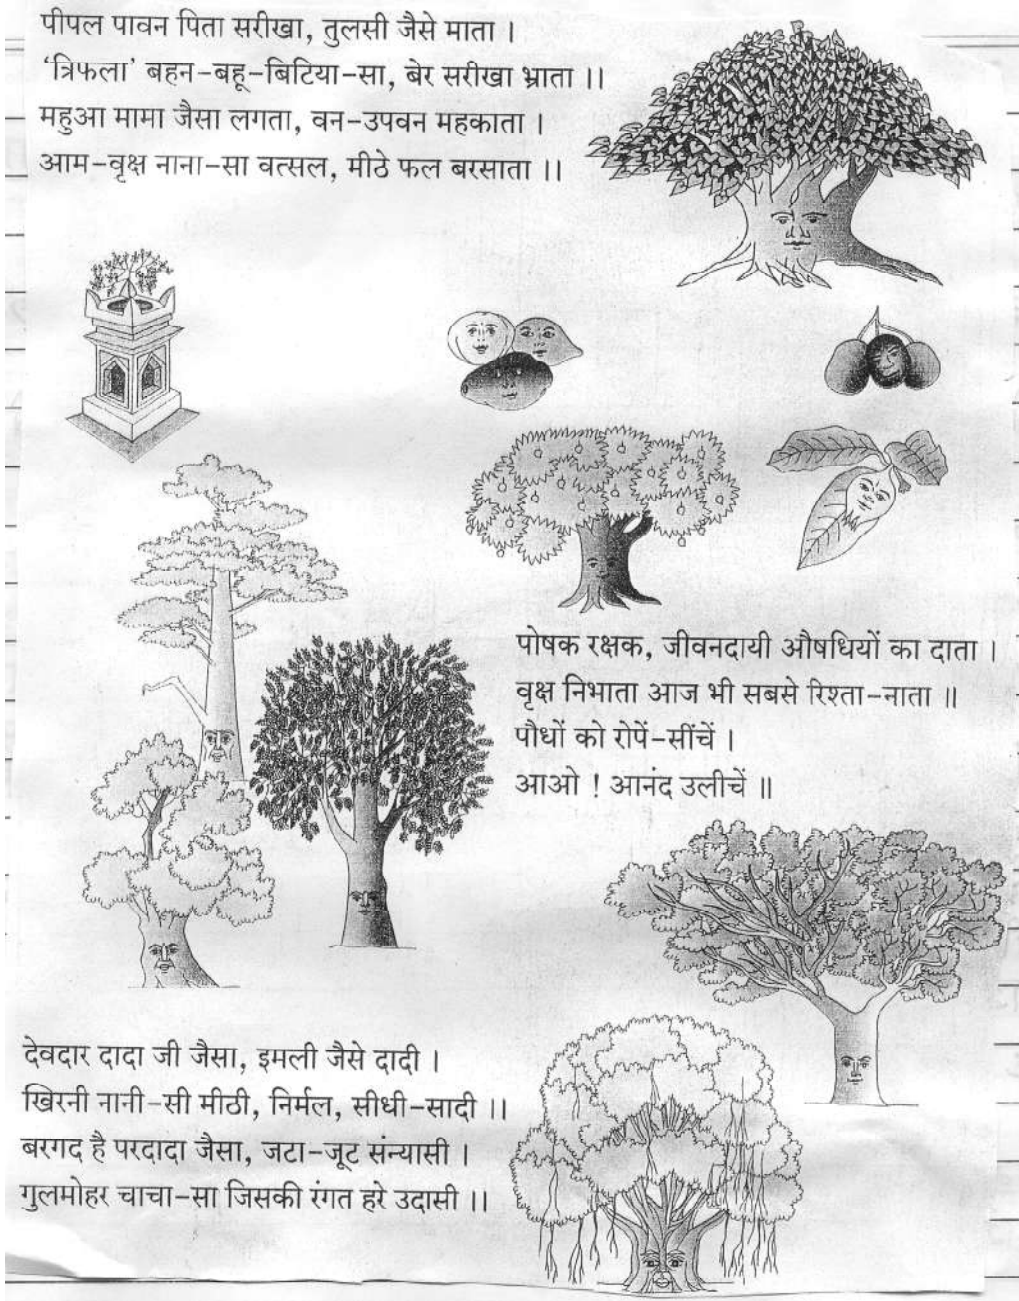 पीपल पावन पिता सरीखा, तुलसी जैसे माता ।
‘त्रिफला’ बहन-बहू-बिटिया-सा, बेर सरीखा भ्राता ।।
महुआ मामा जैसा लगता, वन-उपवन महकाता ।
आम-वृक्ष नाना-सा वत्सल, मीठे फल बरसाता ।।
पोषक रक्षक, जीवनदायी औषधियों का दाता ।
वृक्ष निभाता आज भी सबसे रिश्ता-नाता ॥
पौधों को रोपें-सींचें ।
आओ ! आनंद उलीचें ॥
देवदार दादा जी जैसा, इमली जैसे दादी ।
खिरनी नानी-सी मीठी, निर्मल, सीधी-सादी ।।
बरगद है परदादा जैसा, जटा-जूट संन्यासी ।
गुलमोहर चाचा-सा जिसकी रंगत हरे उदासी ।।